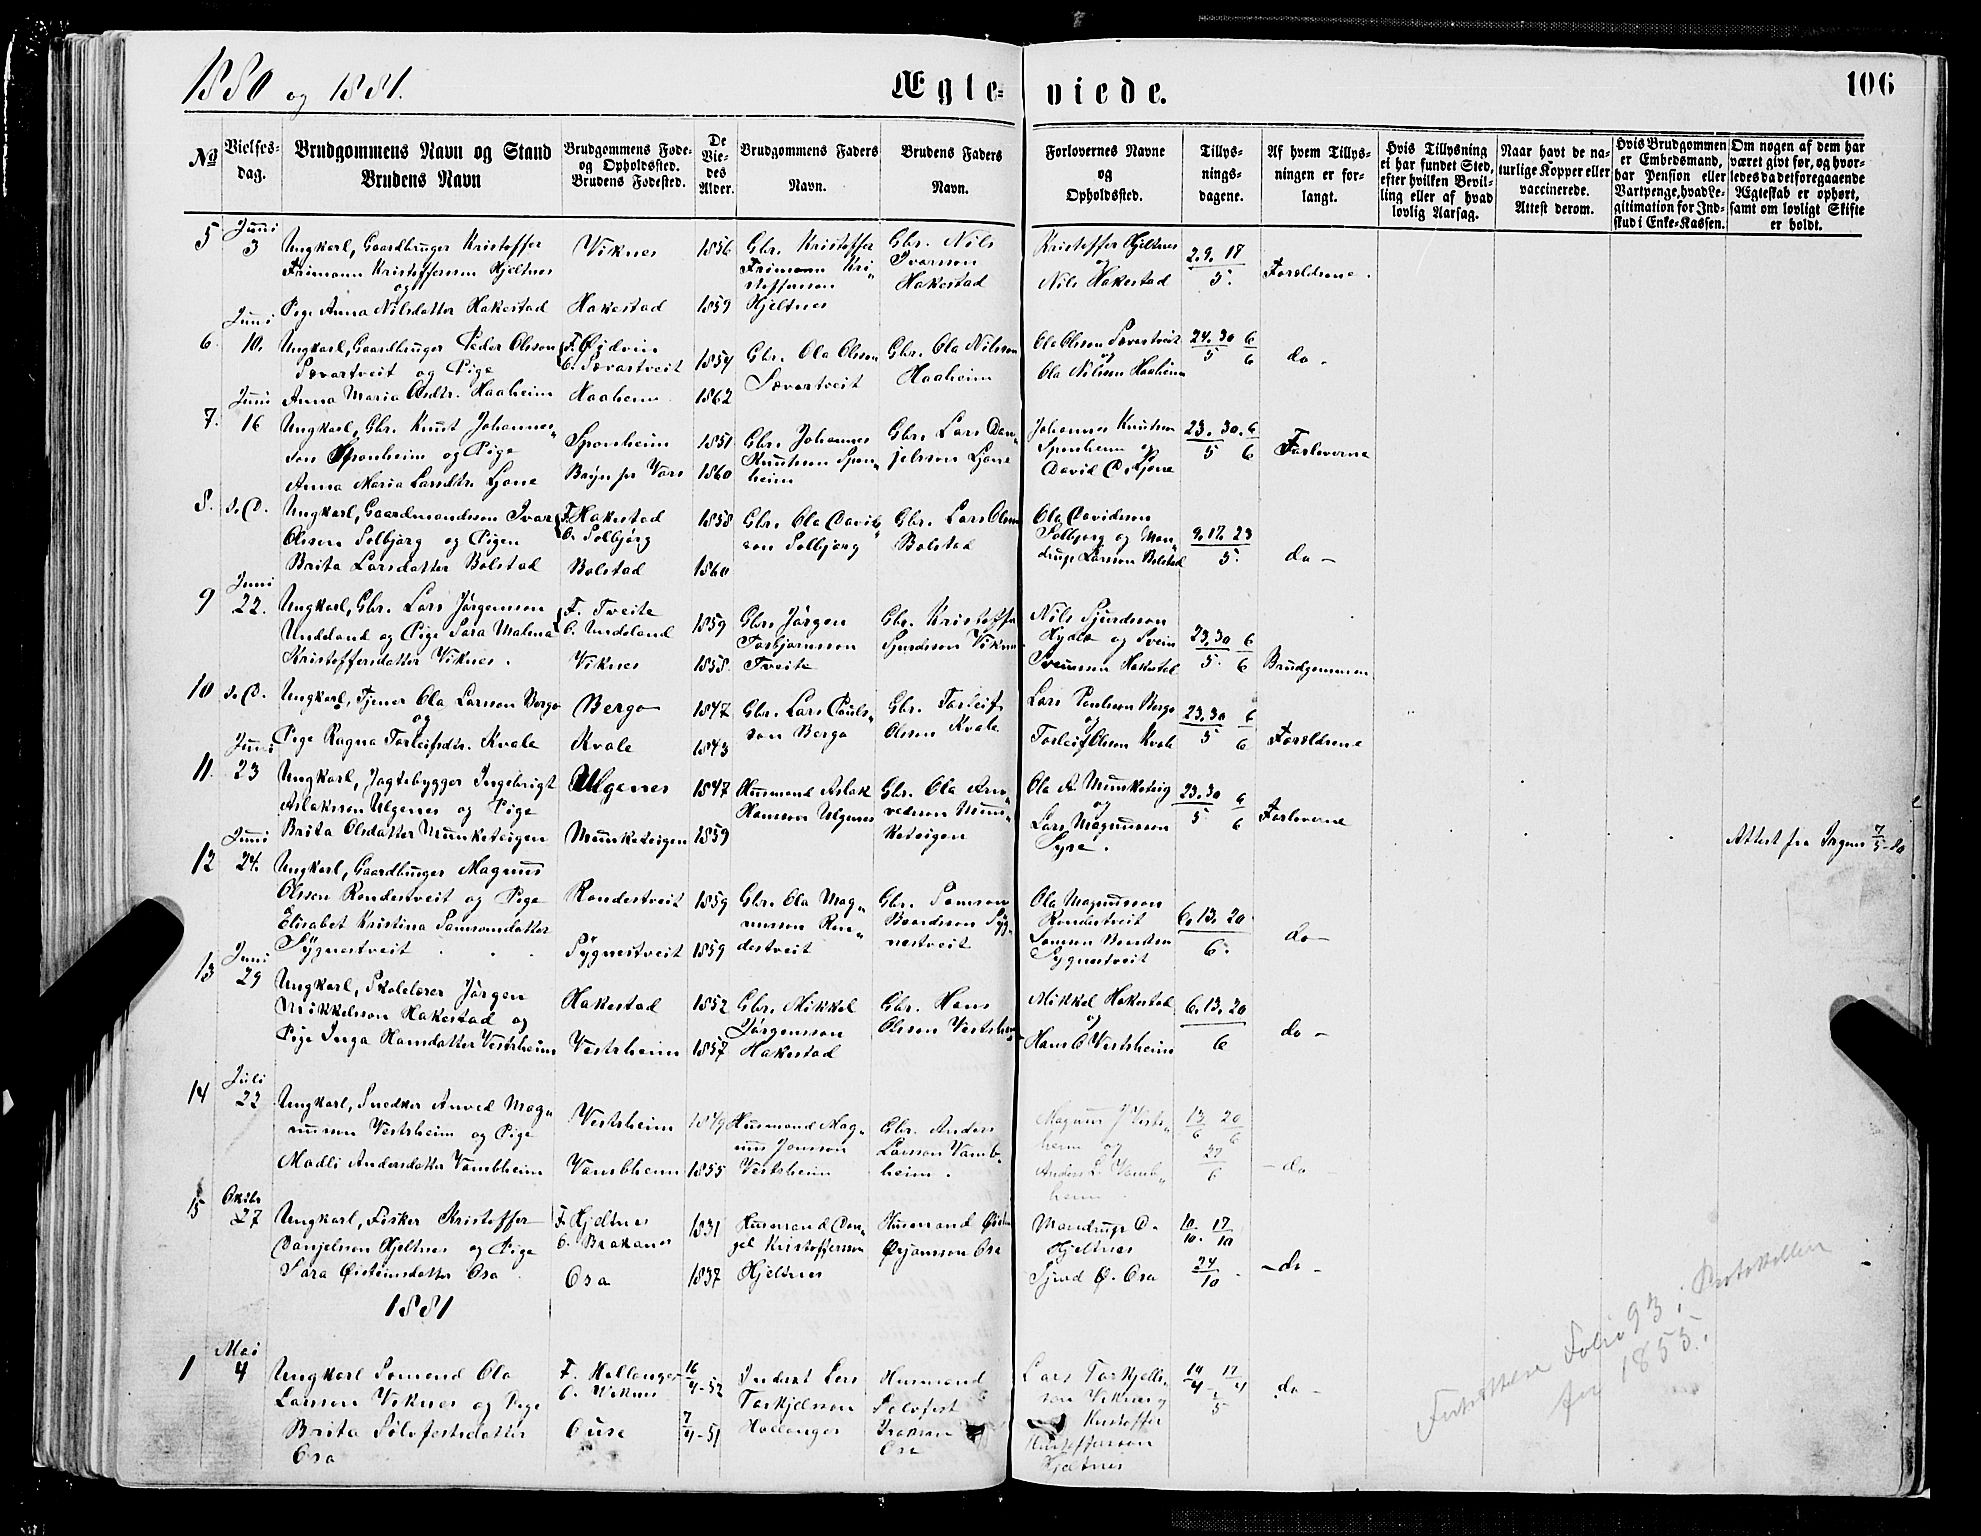 1880 og 1881.
Ægte-
viede.
106
No
Vielses-
dag.
Brudgommens Navn og Stand
Brudens Navn
Brudgommens Føde-
og Opholdssted.
Brudens Fødested.
De
Vie-
des
Alder.
Brudgommens Faders
Navn.
Brudens Faders
Navn.
Forlovernes Navne
og
Opholdssted.
Tillys-
nings-
dagene.
Af hvem Tillys-
ningen er for-
langt.
Hvis Tillysning
ei har fundet Sted,
efter hvilken Bevil-
ling eller af hvad
lovlig Aarsag.
Naar havt de na-
turlige Kopper eller
vaccinerede.
Attest derom.
Hvis Brudgommen
er Embedsmand,
har Pension eller
Vartpenge, hvad Le-
gitimation for Ind-
skud i Enke-Kassen.
Om nogen af dem har
været givt før, og hvor-
ledes da det foregaaende
Ægteskab er ophørt,
samt om lovligt Skifte
er holdt.
5
Juni
3
Ungkarl, Gaardbruger Kristoffer
Frimann Kristoffersson Hjeltnes
og
Pige Anna Nilsdatter Hakestad
Viknes
Hakestad
1856
1859
Gbr. Kristoffer
Frimann Kri-
stoffersson
Hjeltnes
Gbr. Nils
Ivarsson
Hakestad
Kristoffer Hjeltnes
og
Nils Hakestad
2. 9. 17
5.
Forældrene.
6
Juni
10.
Ungkarl, Gaardbruger Peder Olsson
Sævartveit og Pige
Anna Maria Olsdtr. Haaheim
F. Øjdvin
O. Sævartveit
Haaheim
1854
1862
Gbr. Ola Olsson
Sævartveit
Gbr. Ola Nilsson
Haaheim
Ola Olsson Sævartveit
og
Ola Nilsson Haaheim
24. 30 6
5 6
do -
7.
Juni
16
Ungkarl, Gbr. Knut Johannes-
son Sponheim og Pige
Anna Maria Larsdtr. Ljone
Sponheim
1851
1860
Gbr. Johannes
Knutsson Spon-
heim
Gbr. Lars Dan-
jelsson Ljone
Johannes Knutsson
Sponheim og
David D. Ljone
23. 30. 6
5 6
Forloverne
8.
s. D.
Ungkarl, Gaardmandssøn Ivar
Olsson Solbjørg og Pigen
Brita Larsdatter Bolstad
F. Hakestad
O. Solbjørg
Bolstad
1858
1860
Gbr. Ola Davids-
son Solbjørg
Gbr. Lars Olsson
Bolstad
Ola Davidsson
Solbjørg og Man-
drup Larsson Bolstad
9. 17. 23
5.
do -
9
Juni
22.
Ungkarl, Gbr. Lars Jørgensson
Undeland og Pige Sara Malena
Kristoffersdatter Viknes.
F. Tveite
O. Undeland
Viknes
1859
1858.
Gbr. Jørgen
Torbjørnsson
Tveite
Gbr. Kristoffer
Sjurdsson Viknes
Nils Sjurdsson
og Svein
Sveinsson Hakestad
23. 30 6
5. 6
Brudgommen
10
s. D.
Ungkarl, Tjener Ola Larsson Bergo
og
Pige Ragna Torleifsdtr. Kvale
Bergo
Kvale
1847
1843
Gbr. Lars Pouls-
son Bergo
Gbr. Torleif
Olsson Kvale
Lars Poulsson Bergo
og
Torleif Olsson Kvale
23. 30 6
5 6
Forældrene
11.
Juni
23
Ungkarl, Jagtebygger Ingebrigt
Aslaksson Ulgenes og Pige
Brita Olsdatter Munketeigen
Ulgenes
Munketeigen
1847
1859
Husmand Aslak
Hansson Ulgenes
Gbr. Ola Arn-
vedsson Mun-
keteigen
Ola A. Munketeig
og
Lars Magnusson
Syse.
23. 30 6
5 6
Forloverne
Attest fra 7/5-80
12
Juni
24.
Ungkarl, Gaardbruger Magnus
Olsson Rondestveit og Pige
Elisabet Kristina Samsonsdatter
Sygnestveit
Rondestveit
Sygnestveit
1859
1859
Gbr. Ola Mag-
nusson Ron-
destveit
Gbr. Samson
Baardsson Syg-
nestveit
Ola Magnusson
Rondestveit
Samson Baardson
Sygnestveit
6. 13. 20
6.
do
13
Juni
29
Ungkarl, Skolelærer Jørgen
Mikkelsson Hakestad og
Pige Inga Hansdatter Vestrheim
Hakestad
Vestrheim
1852
1857
Gbr. Mikkel
Jørgensson
Hakestad
Gbr. Hans
Olsson Vestrheim
Mikkel Hakestad
og
Hans O Vestrheim
6. 13. 20
6
do -
14
Juli
22
Ungkarl, Snedker Anved Mag-
nusson Vestrheim og Pige
Madli Andersdatter Vambheim
Vestrheim
Vambheim
1849
1855
Husmand Mag-
nus Jonsson
Vestrheim
Gbr. Anders
Larsson Vamb-
heim.
Magnus J Vestr-
heim og
Anders L. Vamb-
heim
13 20
6 6
27
6
- do
15
Oktbr
27
Ungkarl, Fisker Kristoffer
Danjelson Hjeltnes og Pige
Sara Øisteinsdatter Osa
F. Hjeltnes
O. Brakanes
Osa
1831
1837
Husmand Dan-
jel Kristoffersson
Hjeltnes
Husmand Øistein
Ørjansson Osa
Mandrup D.
Hjeltnes
Sjurd Ø. Osa
10 17
10. 10
24
10
- do -
1881
1
Mai
4
Ungkarl Somend Ola
Larsson Viknes og Pige
Brita Sølvfestsdatter
Osa
F. Hollanger
O. Viknes
Ouse
16/4-52
7/4-51
Inderst Lars
Torkjelsson
Hollanger
Husmand
Sølvfest
Osa
Lars Torkjells-
son Viknes og
Kristoffer
Kristoffersson
Hjeltnes
14 17
4 4
1
5
do -
Folio 93 i Protokollen
fra 1855.